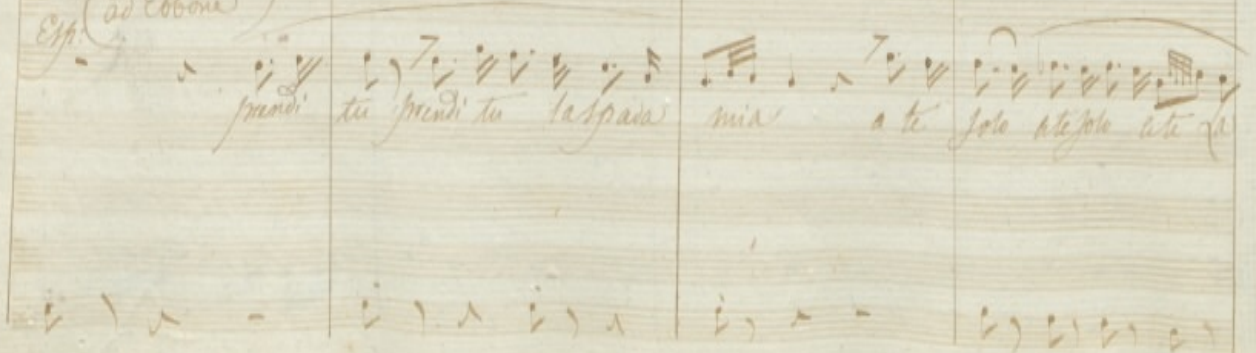 ad Cobona
Esp.
prendi tu prendi tu la spada mia a te solo a te solo a te la